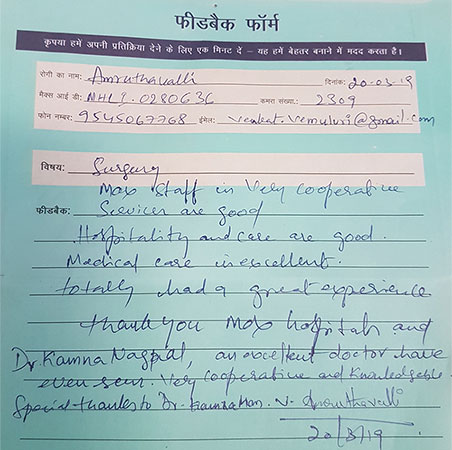 फीडबैक फॉर्म
कृपया हमें अपनी प्रतिक्रिया देने के लिए एक मिनट दें – यह हमें बेहतर बनाने में मदद करता है।
रोगी का नाम: Amruthavalli दिनांक: 20-03-19
मैक्स आई डी: MHL1.0280636 कमरा संख्या.: 2309
फोन नम्बर: 9545067768 ईमेल: venkat.vemuluri@gmail.com
विषय: Surgery
Max staff is Very Cooperative
फीडबैक: Services are good
Hospitality and care are good.
Medical care is excellent.
totally had a great experience
thank you Max hospitals and
Dr. Kamna Nagpal, an excellent doctor have
ever seen. Very Cooperative and Knowledgable
Special thanks to Dr. Kamna Mam. V. Amruthavalli
20/3/19